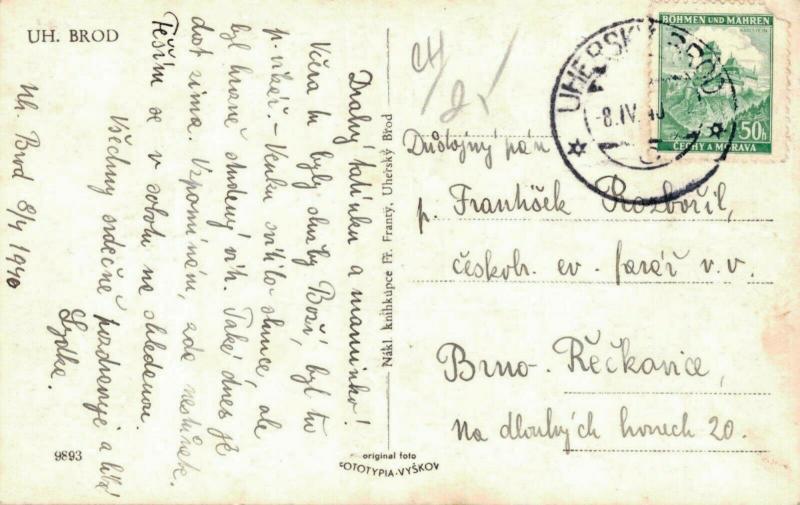 UH. BROD
Uh. Brod 8/4 1940
Drahý tatínku a maminko!
Včera tu byly služby Boží, byl tu
p. vikář. – Venku svítilo slunce, ale
byl hrozně studený vítr. Také dnes je
dost zima. Vzpomínám, zda nestůněte.
Těším se v sobotu na shledanou.
Všechny srdečně pozdravuje a líbá
Lydka.
9893
Nákl. knihkupce Fr. Frantý, Uherský Brod
original foto
FOTOTYPIA-VYŠKOV
BÖHMEN UND MÄHREN
50h
ČECHY A MORAVA
UHERSKÝ BROD
-8.IV.40
Důstojný pán
p. František Rozbořil,
českobr. ev. farář v. v.
Brno-Řečkovice,
Na dlouhých honech 20.